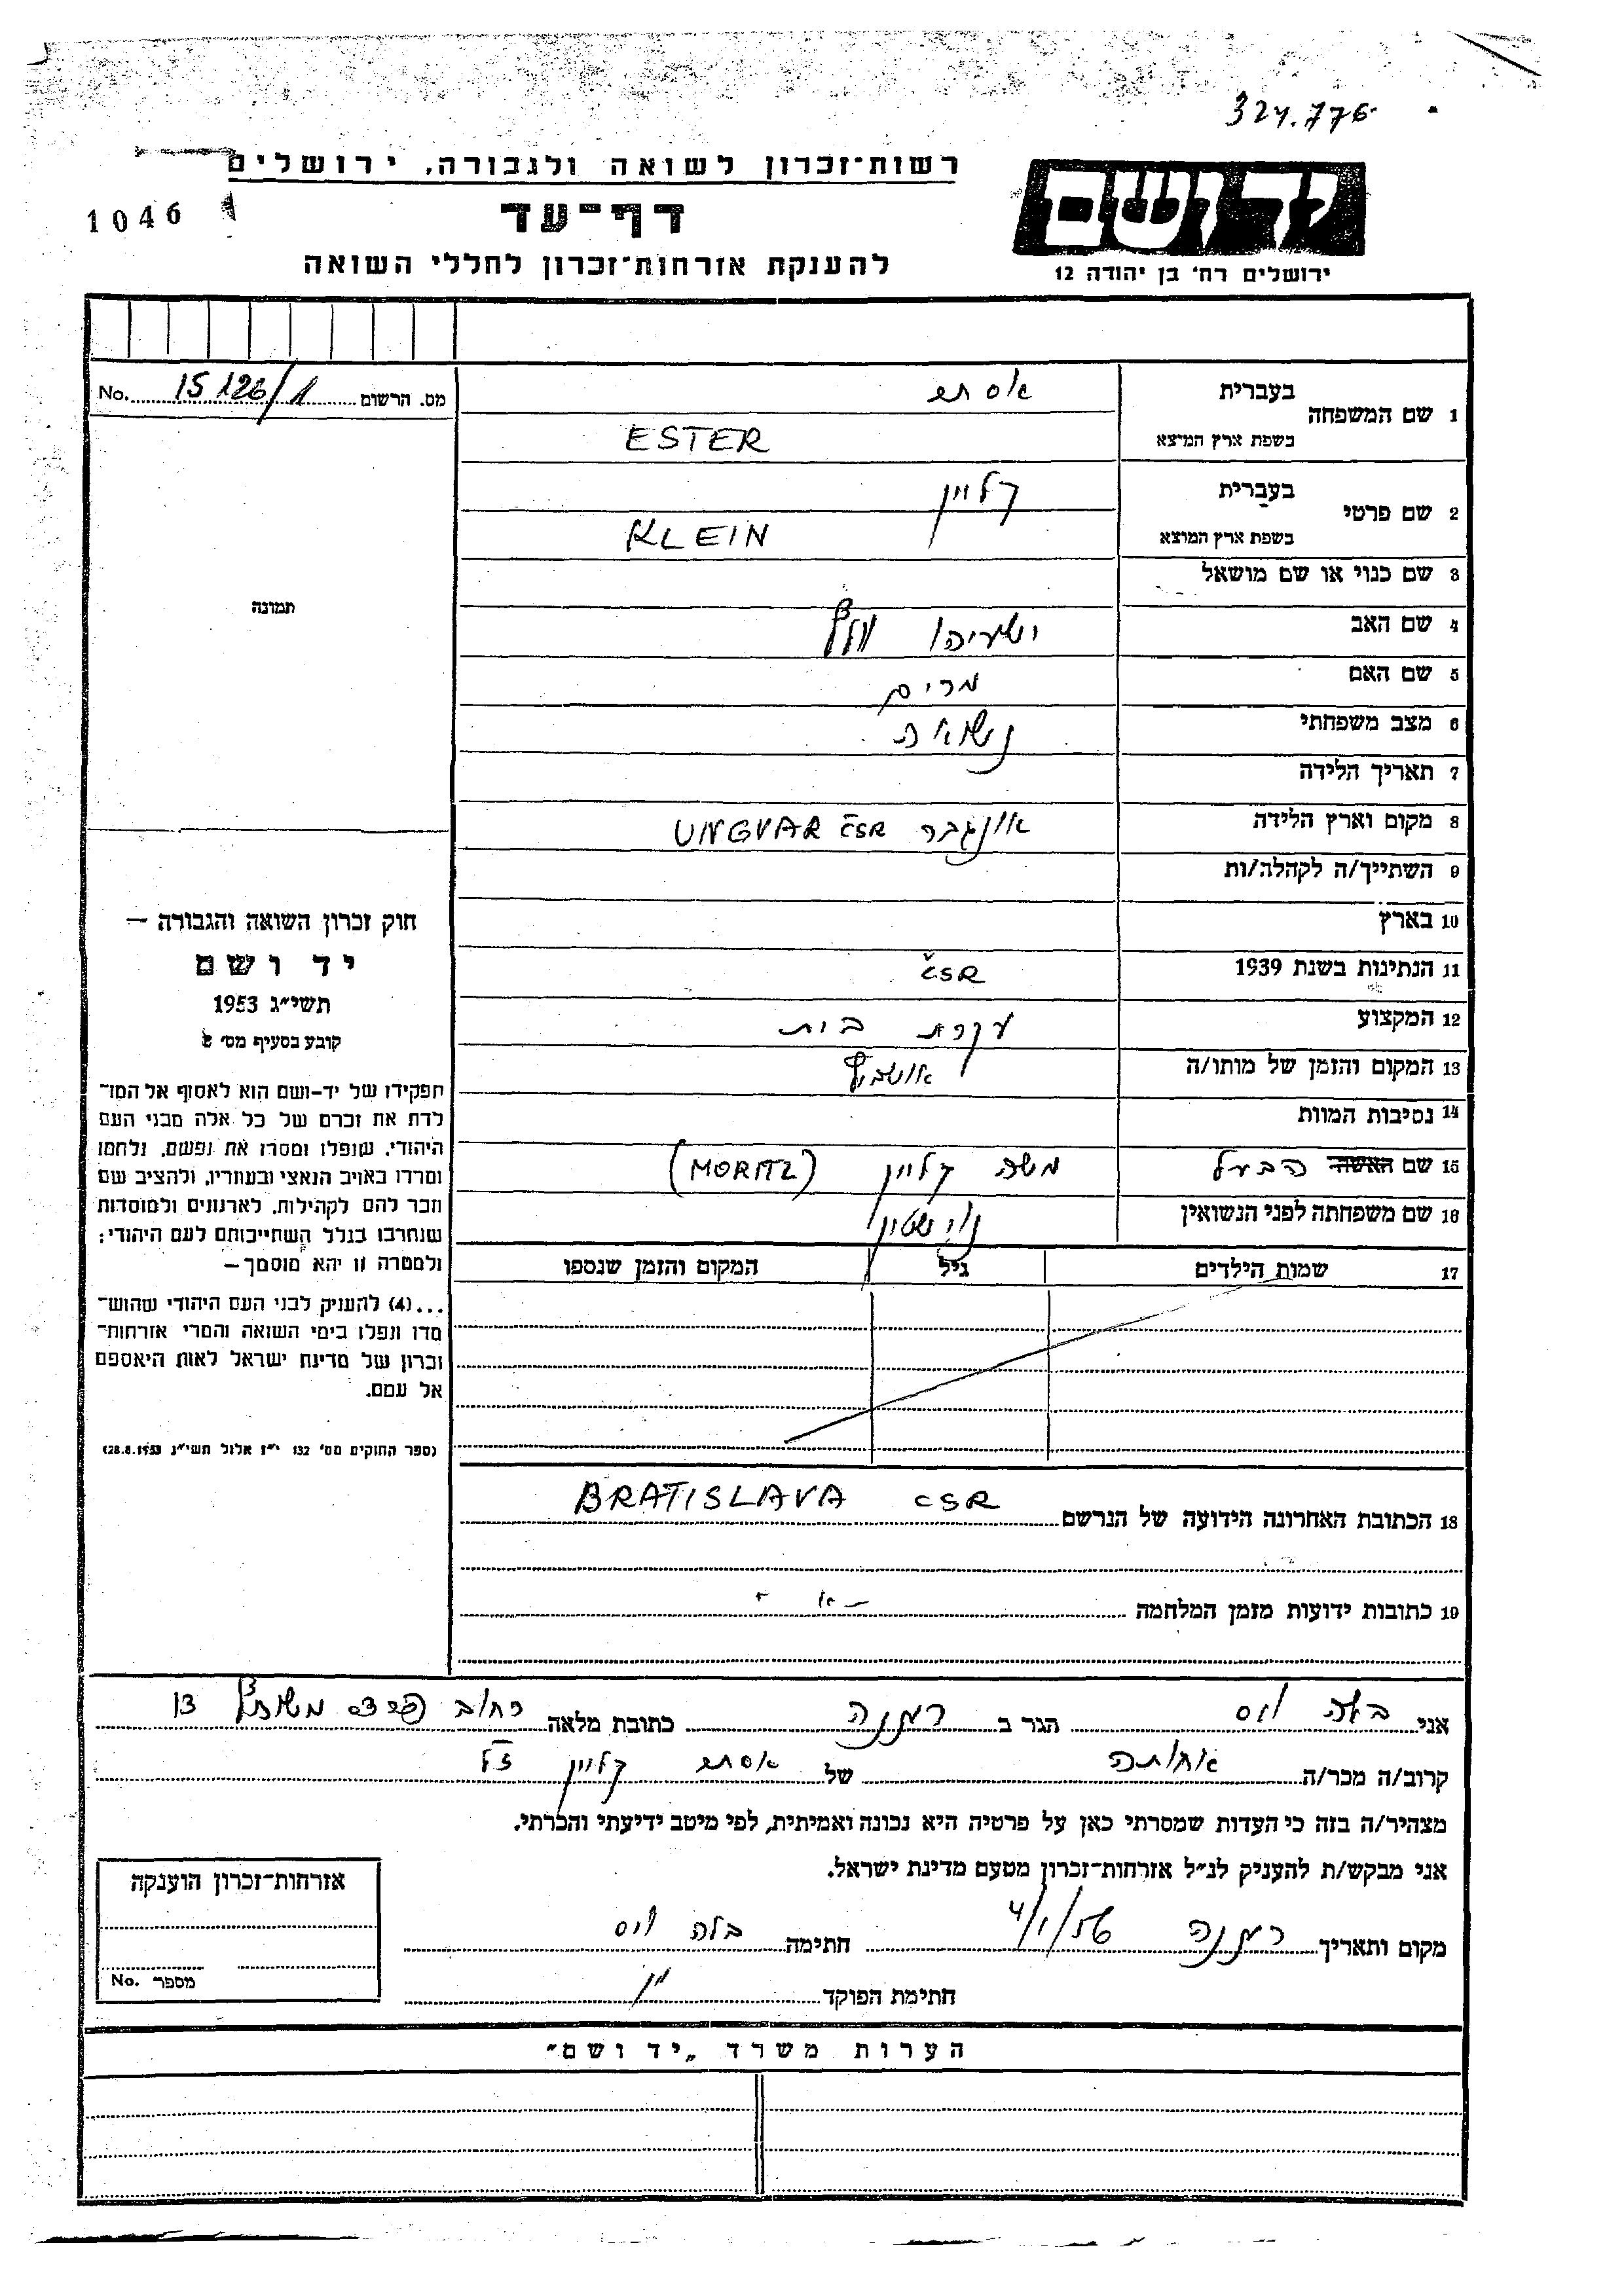 324.776
רשות־זכרון לשואה ולגבורה, ירושלים
יד ושם
1046
דף־עד
להענקת אזרחות־זכרון לחללי השואה
ירושלים רח' בן יהודה 12
מס. הרשום 15126/1 No.
1 שם המשפחה
בעברית אסתר
בשפת ארץ המוצא ESTER
2 שם פרטי
בעברית קליין
בשפת ארץ המוצא KLEIN
3 שם כנוי או שם מושאל
תמונה
4 שם האב ישעיהו
5 שם האם מרים
6 מצב משפחתי נשואה
7 תאריך הלידה
8 מקום וארץ הלידה אונגבר UNGVAR ČSR
9 השתייך/ה לקהלה/ות
10 בארץ
11 הנתינות בשנת 1939 ČSR
12 המקצוע עקרת בית
13 המקום והזמן של מותו/ה אושביץ
14 נסיבות המוות
15 שם האשה הבעל משה קליין (MORITZ)
16 שם משפחתה לפני הנשואין
17 שמות הילדים גיל המקום והזמן שנספו
חוק זכרון השואה והגבורה —
יד ושם
תשי״ג 1953
קובע בסעיף מס' 2
תפקידו של יד-ושם הוא לאסוף אל המו־
לדת את זכרם של כל אלה מבני העם
היהודי, שנפלו ומסרו את נפשם, נלחמו
ומרדו באויב הנאצי ובעוזריו, ולהציב שם
וזכר להם לקהילות, לארגונים ולמוסדות
שנחרבו בגלל השתייכותם לעם היהודי;
ולמטרה זו יהא מוסמך —
...(4) להעניק לבני העם היהודי שהוש־
מדו ונפלו בימי השואה והמרי אזרחות־
זכרון של מדינת ישראל לאות היאספם
אל עמם.
(ספר החוקים מס' 132 י״ז אלול תשי״ג 28.8.1953)
18 הכתובת האחרונה הידועה של הנרשם BRATISLAVA CSR
19 כתובות ידועות מזמן המלחמה
אני בלה וייס הגר ב רעננה כתובת מלאה רחוב פרדס משותף 13
קרוב/ה מכר/ה אחותה של אסתר קליין ז״ל
מצהיר/ה בזה כי העדות שמסרתי כאן על פרטיה היא נכונה ואמיתית, לפי מיטב ידיעתי והכרתי.
אני מבקש/ת להעניק לנ״ל אזרחות־זכרון מטעם מדינת ישראל.
מקום ותאריך רעננה חתימה בלה וייס
חתימת הפוקד
אזרחות־זכרון הוענקה
מספר No.
הערות משרד „יד ושם״